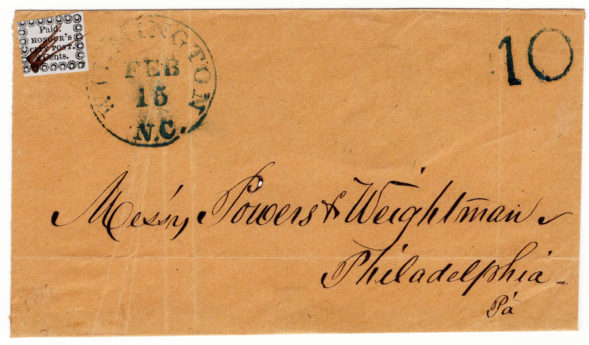 Paid.
HONOUR'S
CITY POST.
Cents.
WILMINGTON
FEB
15
N.C.
10
Mess'rs Powers & Weightman
Philadelphia
Pa